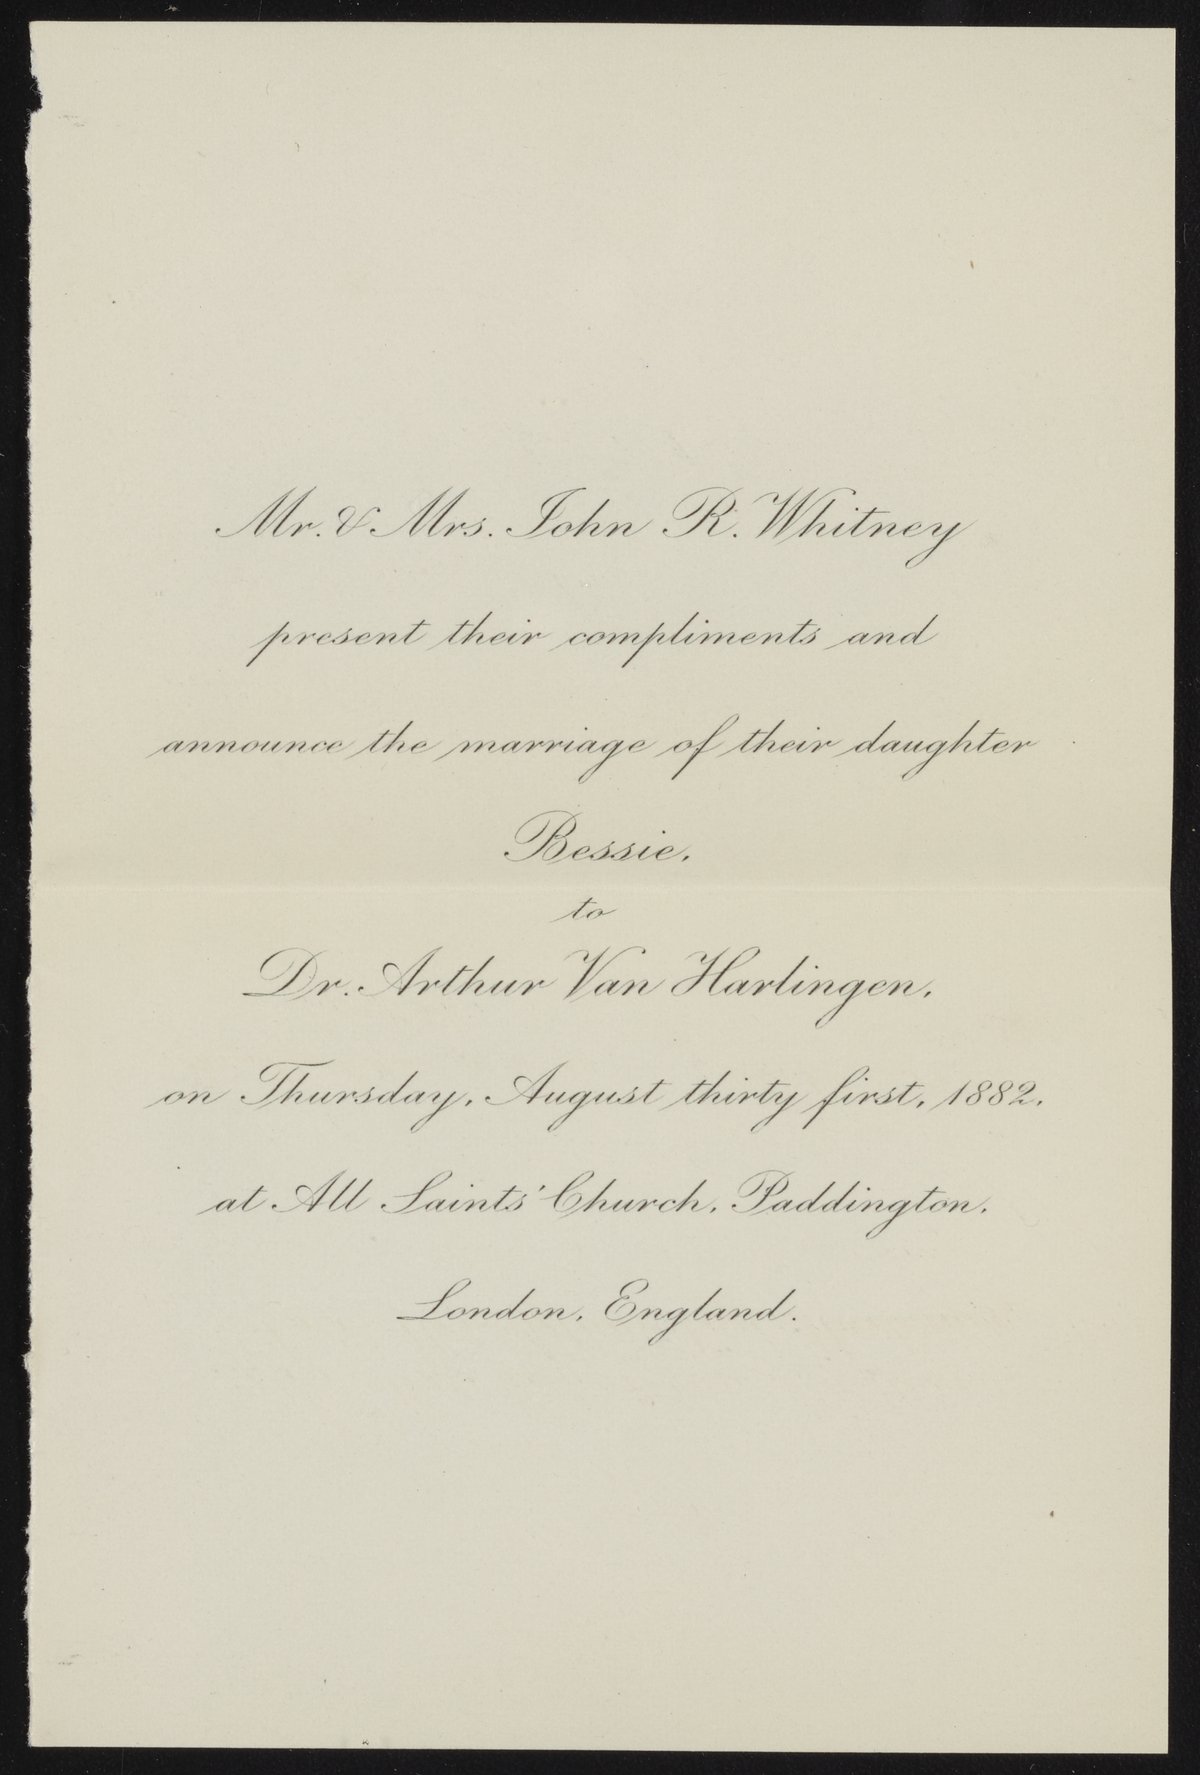 Mr. & Mrs. John R. Whitney
present their compliments and
announce the marriage of their daughter
Bessie,
to
Dr. Arthur Van Harlingen,
on Thursday, August thirty first, 1882,
at All Saints' Church, Paddington,
London, England.